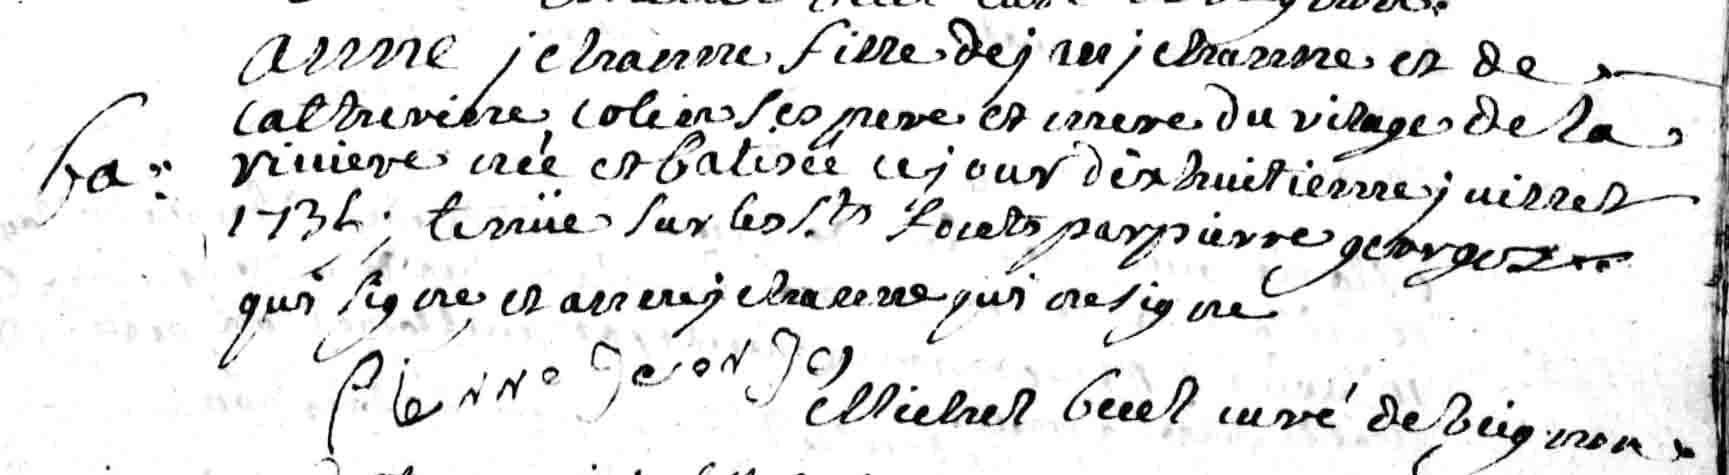 anne jehanne fille de jan jehanne et de
catherine colin ses pere et mere du vilage de la
ba: riviere née et batisée ce jour dix huitienne juillet
1734; tenüe sur les sts fonts par pierre georges
qui signe et anne jehanne qui ne signe
Pierre Georges
Michel buet curé de buignon